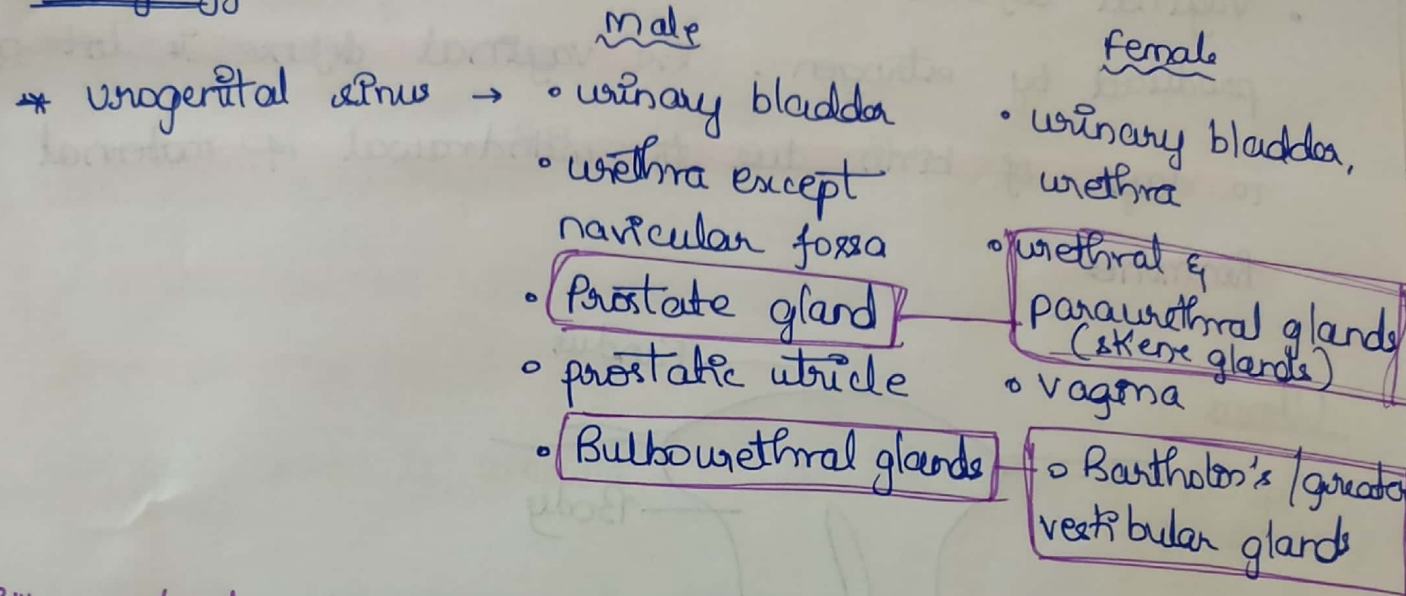 Male
Female
* urogenital sinus → • urinary bladder
• urethra except
navicular fossa
• Prostate gland
• prostatic utricle
• Bulbourethral glands
• urinary bladder,
urethra
• urethral &
paraurethral glands
(skene glands)
• vagina
• Bartholin's / greater
vestibular glands
Body